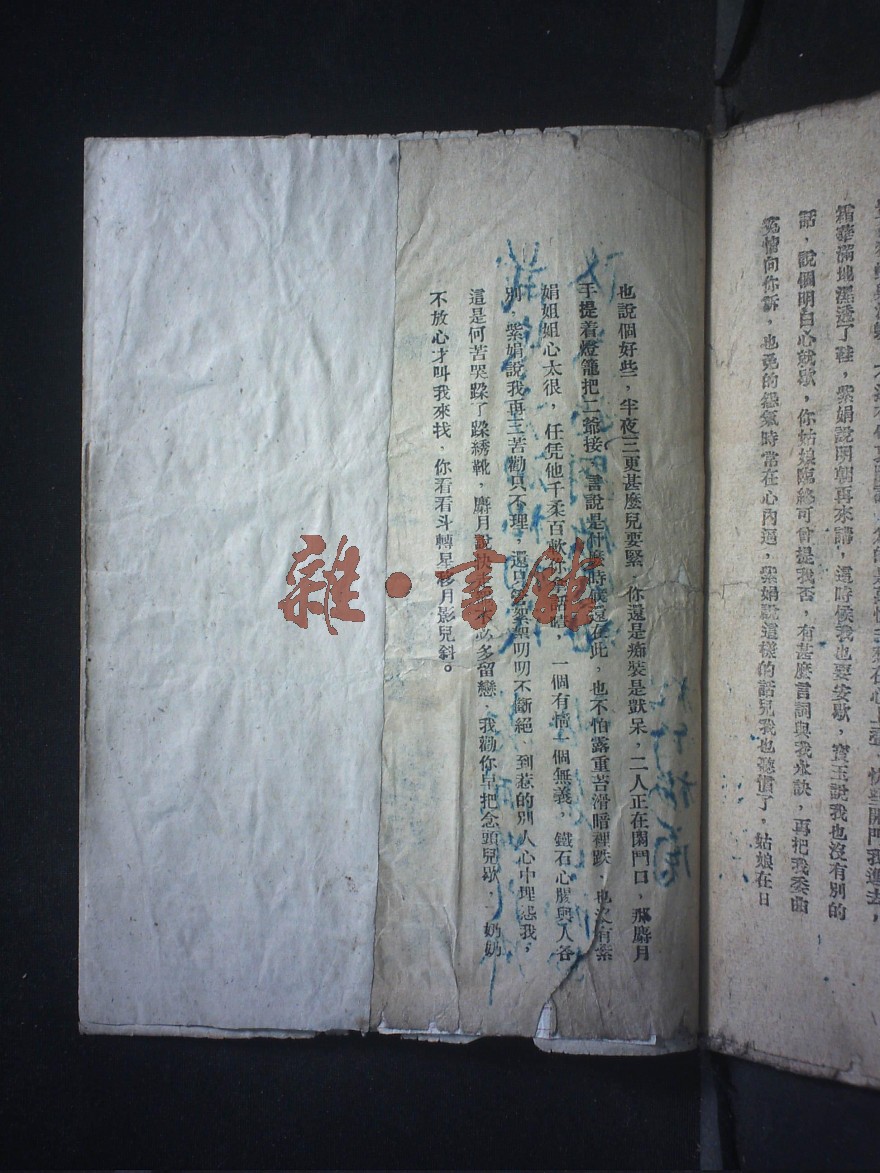 霜華滿地濕透了鞋，紫娟說明朝再來講，這時候我也要安歇，寶玉說我也沒有別的
話，說個明白心就歇，你姑娘臨終可曾提我否，有甚麼言詞與我永訣，再把我委曲
冤情向你訴，也免的怨氣時常在心內逗，紫娟說這樣的話兒我也聽慣了，姑娘在日
也說個好些，半夜三更甚麼兒要緊，你還是痴裝是獃呆，二人正在鬧鬥口，那麝月
手提着燈籠把二爺接，言說是什麼時候還在此，也不怕露重苔滑暗裡跌，也沒有紫
娟姐姐心太很，任凭他千柔百軟你會話 一個有情一個無義，鐵石心腸與人各
別，紫娟說我再三苦勸只不理，還只 絮絮叨叨不斷絕，到惹的別人心中埋怨我，
這是何苦哭跺了跺綉靴，麝月說快 不必多留戀，我勸你早把念頭兒歇，二奶奶
不放心才叫我來找，你看看斗轉星移月影兒斜。
雜·書館